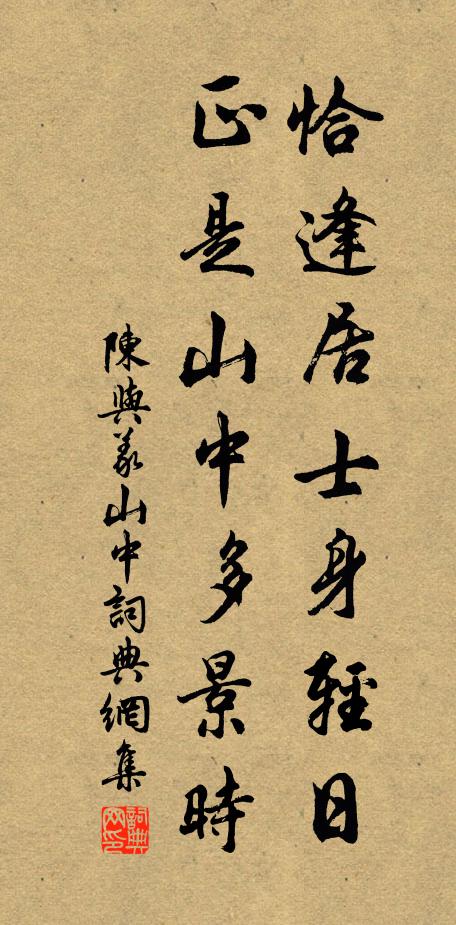 恰逢居士身輕日
正是山中多景時
陳與義山中詞典網集
詞典网印